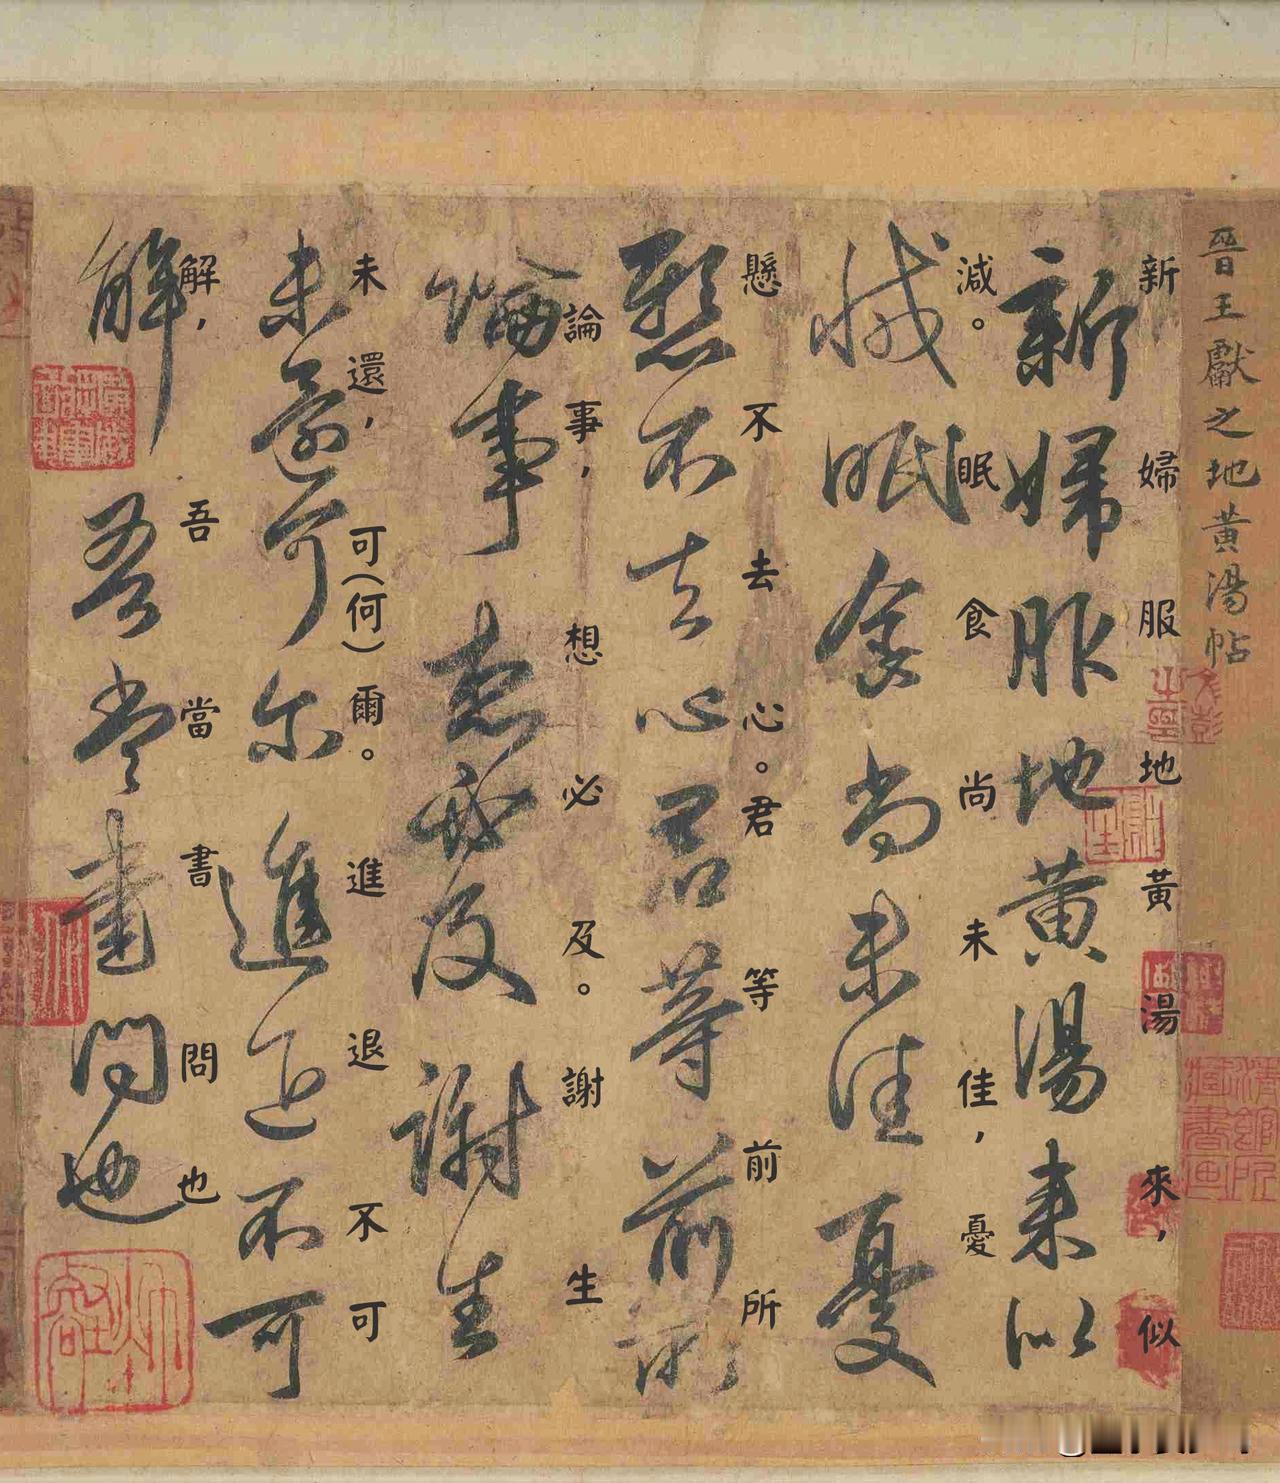 晉王獻之地黃湯帖
新婦服地黃湯來，似
新婦服地黃湯来以
減。眠食尚未佳，憂
減眠食尚未佳憂
懸不去心。君等前所
懸不去心君等前所
論事，想必及。謝生
論事想必及謝生
未還，可(何)爾。進退不可
未還可尔進退不可
解，吾當書問也
解吾當書問也